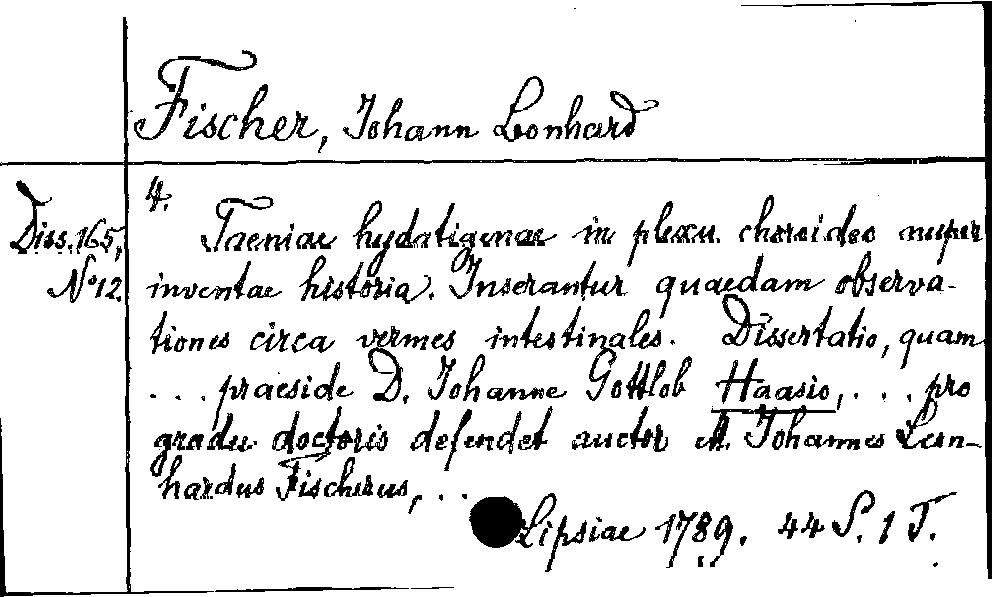 Fischer, Johann Leonhard
4.
Diss. 165,
No 12.
Taeniae hydatigenae in plexu choroideo nuper
inventae historia. Inserantur quaedam observa-
tiones circa vermes intestinales. Dissertatio, quam
... praeside D. Johanne Gottlob Haasio, ... pro
gradu doctoris defendet auctor M. Johannes Leon-
hardus Fischerus, ...
Lipsiae 1789. 44 S. 1 T.